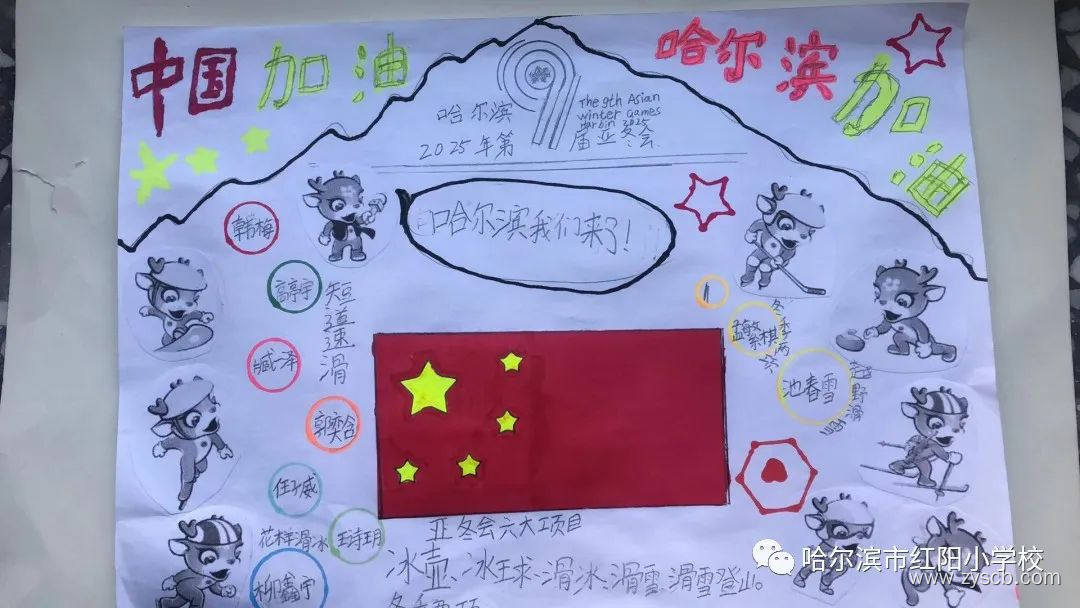 中国加油
哈尔滨加油
哈尔滨
The 9th Asian
winter Games
Harbin 2025
2025年第9届亚冬会
哈尔滨我们来了!
韩梅
高亭宇
短道速滑
臧一泽
郭奕含
任子威
花样滑冰
王诗玥
柳鑫宇
孟繁棋
冬季两项
池春雪
越野滑雪
亚冬会六大项目
冰壶、冰球、滑冰、滑雪、滑雪登山。
冬季两项
哈尔滨市红阳小学校
www.zyscb.com